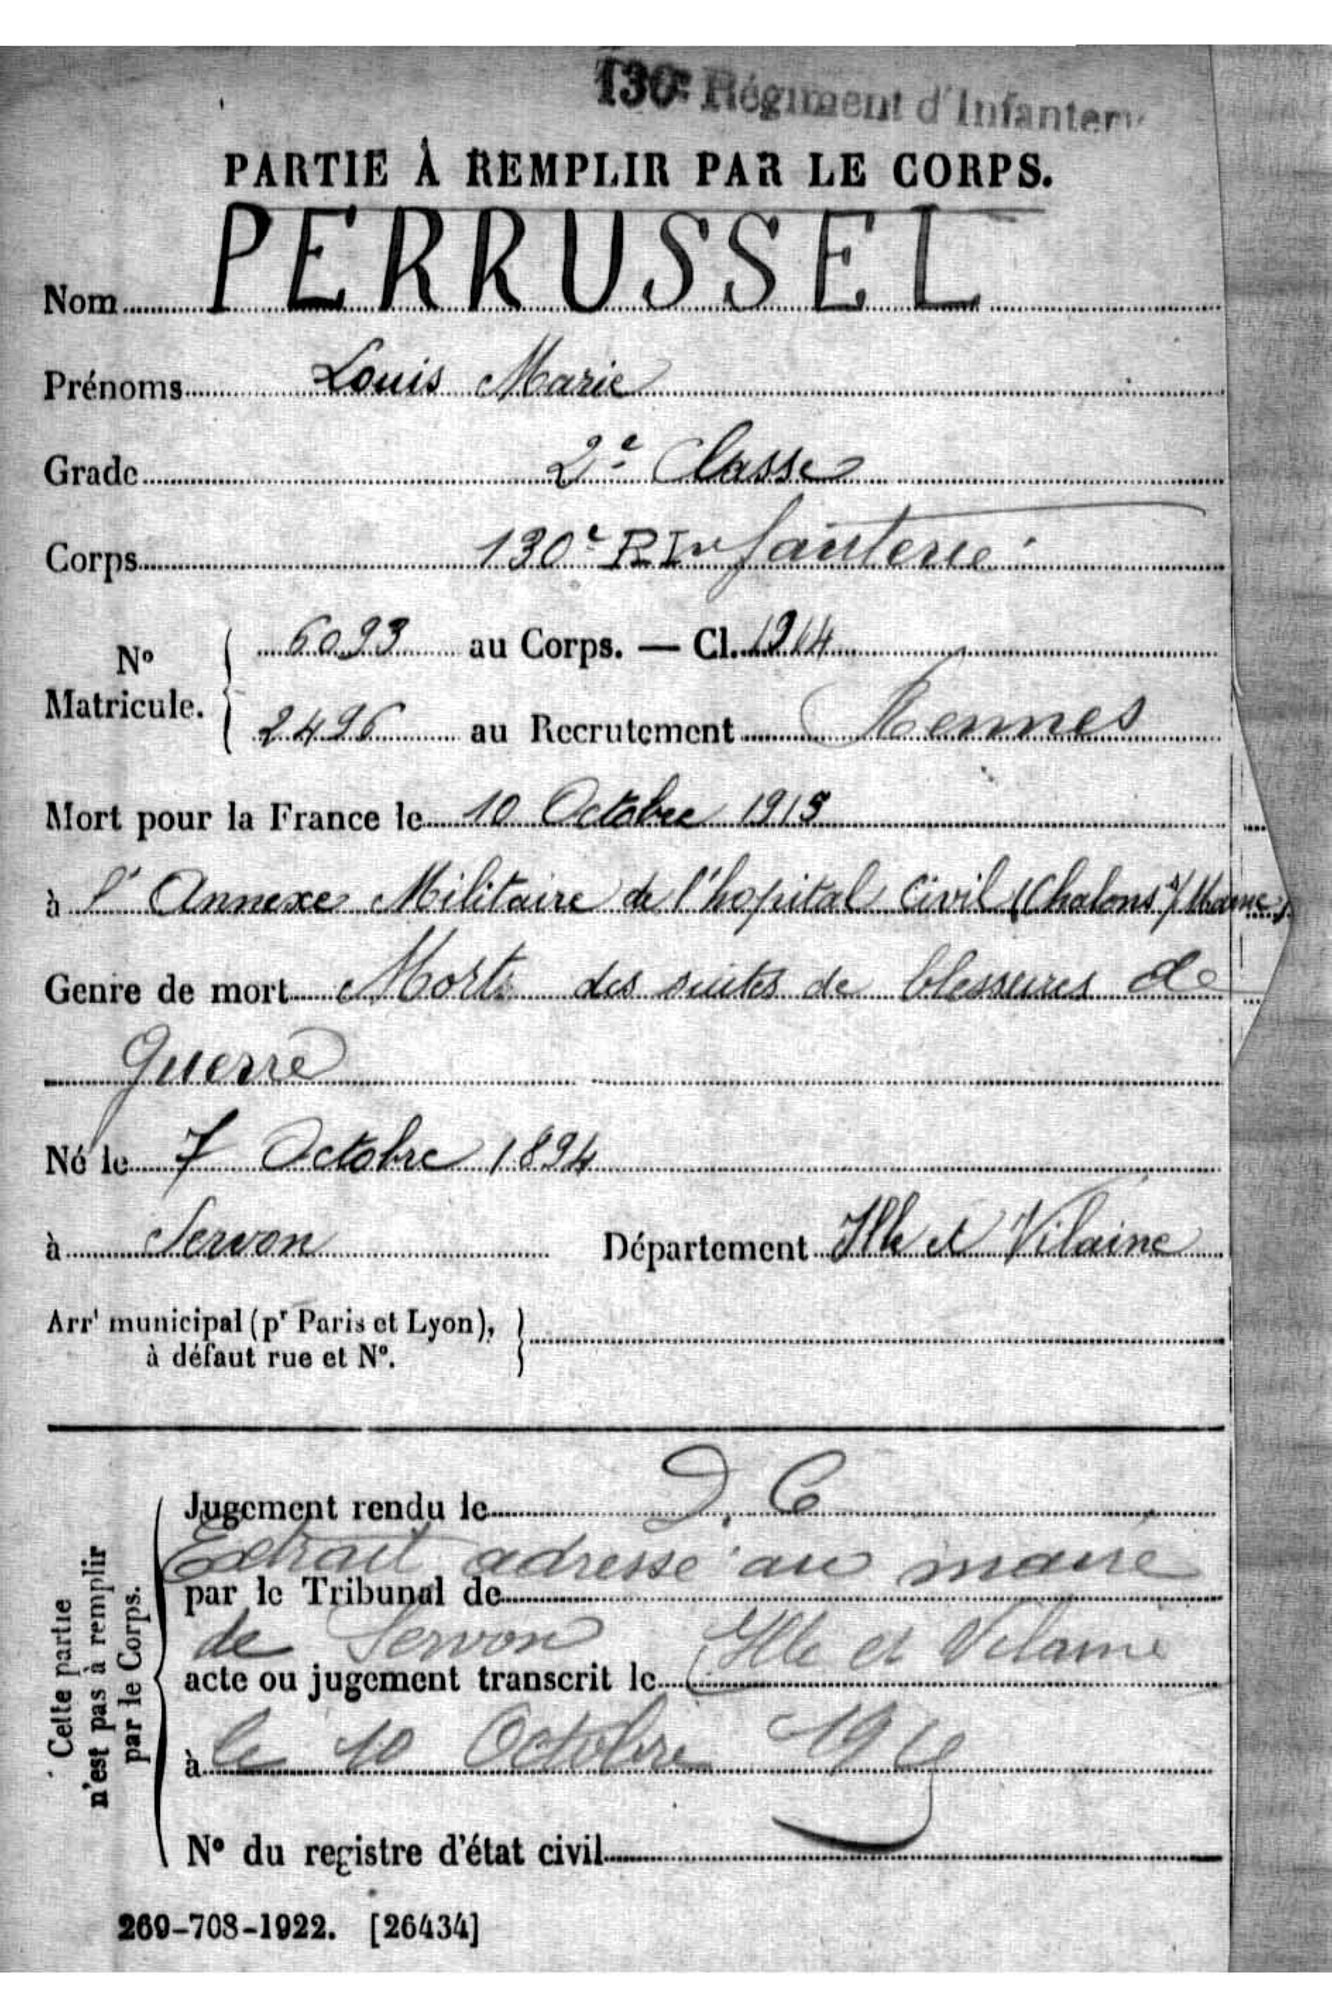 130e Régiment d'Infanterie
PARTIE À REMPLIR PAR LE CORPS.
Nom PERRUSSEL
Prénoms Louis Marie
Grade 2e Classe
Corps 130e R Infanterie
No Matricule. 6093 au Corps. — Cl. 1914
2496 au Recrutement Rennes
Mort pour la France le 10 Octobre 1915
à l'Annexe Militaire de l'hopital Civil (Chalons s/ Marne)
Genre de mort Morts des suites de blessures de
Guerre
Né le 7 Octobre 1894
à Servon Département Ille et Vilaine
Arrt municipal (pr Paris et Lyon),
à défaut rue et No.
Cette partie
n'est pas à remplir
par le Corps.
Jugement rendu le D. C
Extrait adressé au maire
par le Tribunal de
de Servon Ille et Vilaine
acte ou jugement transcrit le
à le 10 Octobre
No du registre d'état civil
269-708-1922. [26434]